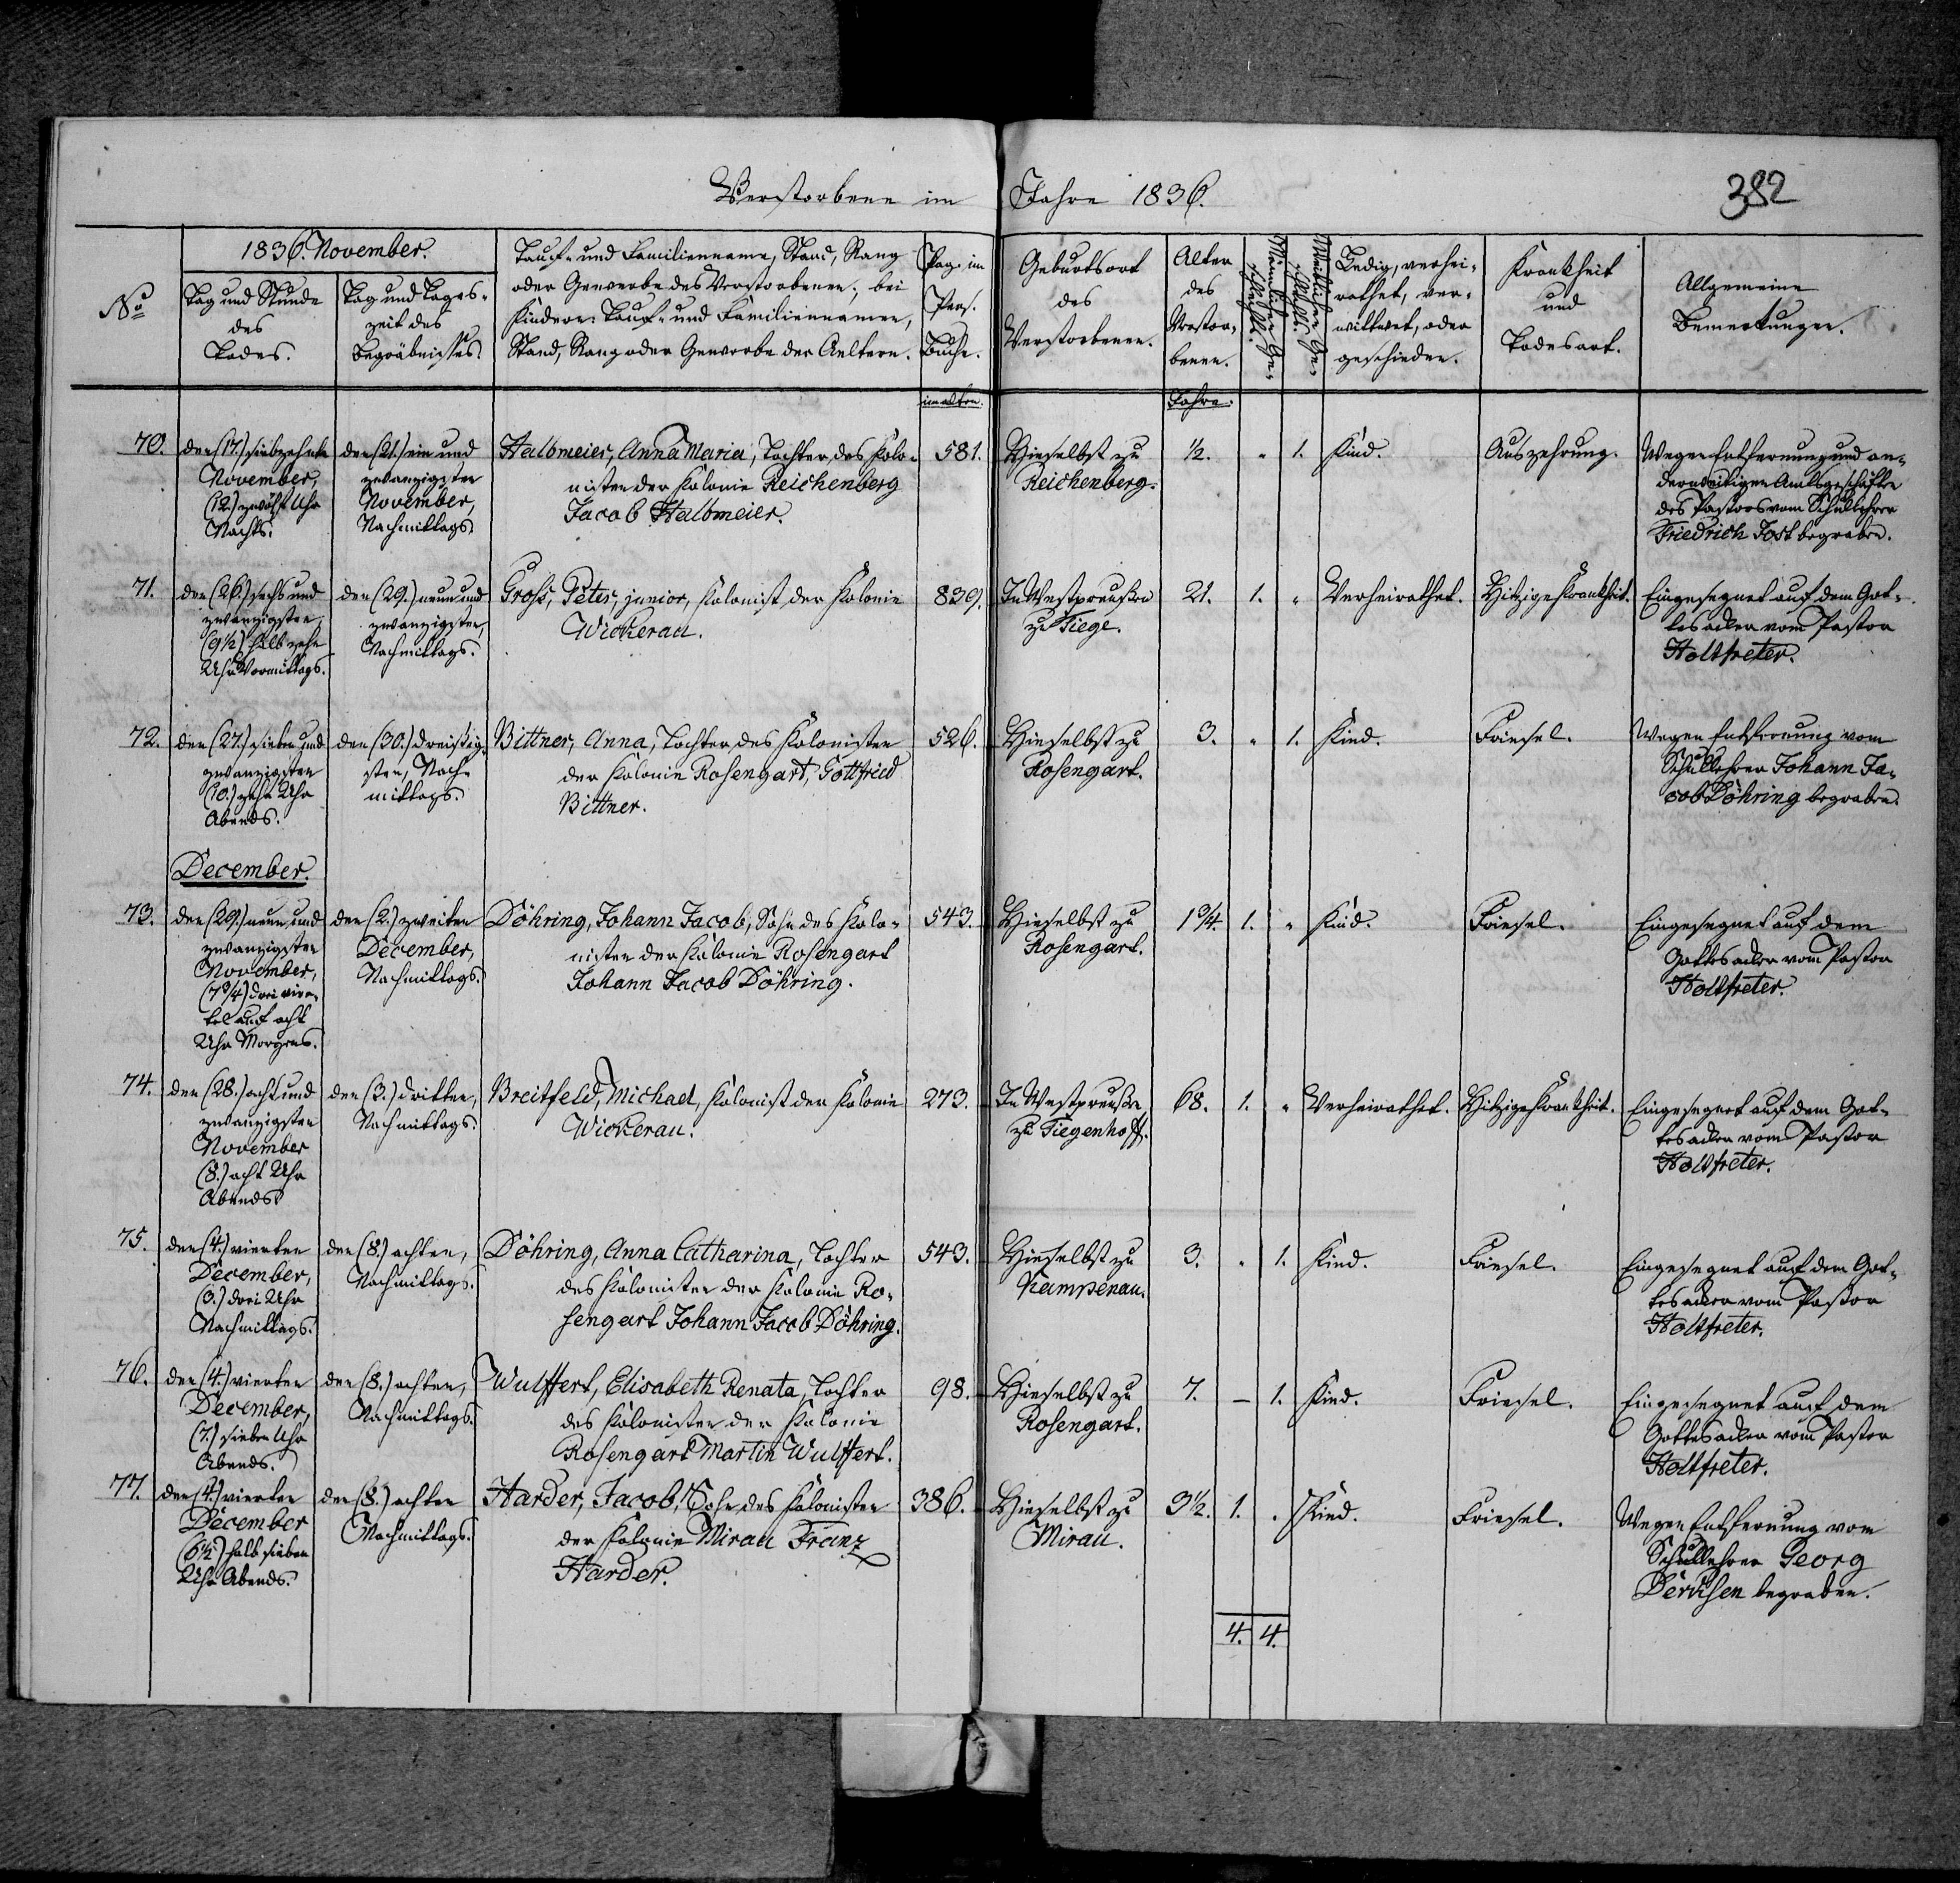 Verstorbene im Jahre 1836.
382
No
1836. November.
Tag und Stunde
des
Todes.
Tag und Tages-
zeit des
Begräbnisses.
Tauf- und Familienname, Stand, Rang
oder Gewerbe des Verstorbenen; bei
Kindern: Tauf- und Familiennamen,
Stand, Rang oder Gewerbe der Aeltern.
Pag. im
Pers.
Buche.
Geburtsort
des
Verstorbenen.
Alter
des
Verstor-
benen.
Männlichen Ge-
schlechts.
Weiblichen Ge-
schlechts.
Ledig, verhei-
rathet, ver-
wittwet, oder
geschieden.
Krankheit
und
Todesart.
Allgemeine
Bemerkungen.
im alten.
Jahre.
70.
den (17.) siebzehnten
November,
(12.) zwölf Uhr
Nachts.
den (21.) ein und
zwanzigsten
November,
Nachmittags.
Halbmeier, Anna Maria, Tochter des Kolo-
nisten der Kolonie Reichenberg
Jacob Halbmeier.
581.
Hieselbst zu
Reichenberg.
½.
" 1.
Kind.
Auszehrung.
Wegen Entfernung und an-
derweitigen Amtsgeschäfte
des Pastors vom Schullehrer
Friedrich Jost begraben.
71.
den (26.) sechs und
zwanzigsten,
(9½) halb zehn
Uhr Vormittags.
den (29.) neun und
zwanzigsten,
Nachmittags.
Grosz, Peter, junior, Kolonist der Kolonie
Wickerau.
839.
In Westpreußen
zu Tiege.
21.
1. "
Verheirathet.
Hitzige Krankheit.
Eingesegnet auf dem Got-
tesacker vom Pastor
Holtfreter.
72.
den (27.) sieben und
zwanzigsten
(10.) zehn Uhr
Abends.
den (30.) dreißig-
sten, Nach-
mittags.
Bittner, Anna, Tochter des Kolonisten
der Kolonie Rosengart, Gottfried
Bittner.
526.
Hieselbst zu
Rosengart.
3.
" 1.
Kind.
Friesel.
Wegen Entfernung vom
Schullehrer Johann Ja-
cob Döhring begraben.
December.
73.
den (29.) neun und
zwanzigsten
November,
(7¾) drei vier-
tel auf acht
Uhr Morgens.
den (2.) zweiten
December,
Nachmittags.
Döhring, Johann Jacob, Sohn des Kolo-
nisten der Kolonie Rosengart
Johann Jacob Döhring.
543.
Hieselbst zu
Rosengart.
1¾.
1. "
Kind.
Friesel.
Eingesegnet auf dem
Gottesacker vom Pastor
Holtfreter.
74.
den (28.) acht und
zwanzigsten
November
(8.) acht Uhr
Abends.
den (3.) dritten,
Nachmittags.
Breitfeld, Michael, Kolonist der Kolonie
Wickerau.
273.
In Westpreußen
zu Tiegenhoff.
68.
1. "
Verheirathet.
Hitzige Krankheit.
Eingesegnet auf dem Got-
tesacker vom Pastor
Holtfreter.
75.
den (4.) vierten
December,
(3.) drei Uhr
Nachmittags.
den (8.) achten,
Nachmittags.
Döhring, Anna Catharina, Tochter
des Kolonisten der Kolonie Ro-
sengart Johann Jacob Döhring.
543.
Hieselbst zu
Kampenau.
3.
" 1.
Kind.
Friesel.
Eingesegnet auf dem Got-
tesacker vom Pastor
Holtfreter.
76.
den (4.) vierten
December,
(7.) sieben Uhr
Abends.
den (8.) achten,
Nachmittags.
Wulffert, Elisabeth Renata, Tochter
des Kolonisten der Kolonie
Rosengart Martin Wulffert.
98.
Hieselbst zu
Rosengart.
7.
– 1.
Kind.
Friesel.
Eingesegnet auf dem
Gottesacker vom Pastor
Holtfreter.
77.
den (4.) vierten
December
(6½) halb sieben
Uhr Abends.
den (8.) achten
Nachmittags.
Harder, Jacob, Sohn des Kolonisten
der Kolonie Mirau Franz
Harder.
386.
Hieselbst zu
Mirau.
3½.
1. "
Kind.
Friesel.
Wegen Entfernung vom
Schullehrer Georg
begraben.
4. 4.